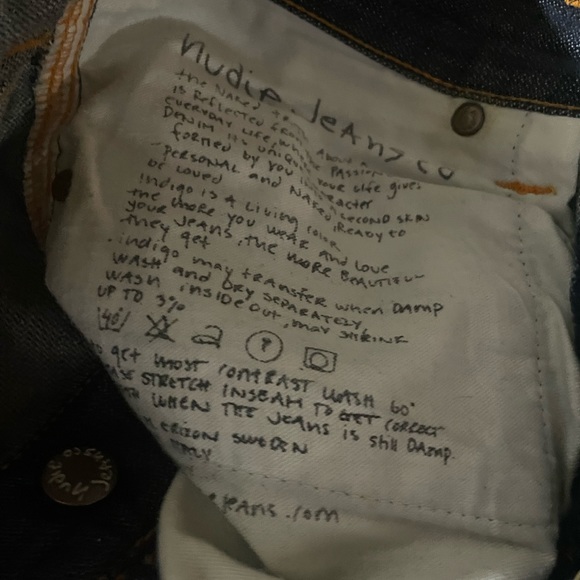 Nudie. Jeans co
the NAKED
is Reflected ABOUT
EVERYDAY Life, PASSION
DENIM its uniqu YOUR Life gives
formed by you character
PERSONAL and NAKED SECOND SKIN
be loved READY to
indigo is A Living color
the more you wear and Love
your JEANS, the more BEAUTIFUL
they get
indigo may transfer when DAMP
WASH and DRY SEPARATELY,
WASH insideout, may SHRINK
UP TO 3%
40 P
get MOST CONTRAST WASH 60°
ASE STRETCH INSEAM to GET CORRECT
TH WHEN THE JEANS is still DAmp.
ERIZON SWEDEN
TALY
eJeans.com
Nudie Jeans co